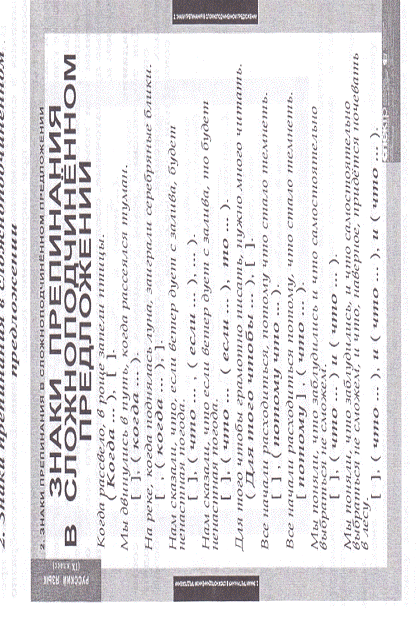 2. Знаки препинания в сложноподчинённом
предложении
РУССКИЙ ЯЗЫК
(IX класс)
2. ЗНАКИ ПРЕПИНАНИЯ В СЛОЖНОПОДЧИНЁННОМ ПРЕДЛОЖЕНИИ
ЗНАКИ ПРЕПИНАНИЯ
В СЛОЖНОПОДЧИНЁННОМ
ПРЕДЛОЖЕНИИ
Когда рассвело, в роще запели птицы.
(Когда ...), [ ].
Мы двинулись в путь, когда рассеялся туман.
[ ], (когда ...).
На реке, когда поднялась луна, заиграли серебряные блики.
[ , (когда ...), ].
Нам сказали, что, если ветер дует с залива, будет
ненастная погода.
[ ], (что ..., (если ...), ...).
Нам сказали, что если ветер дует с залива, то будет
ненастная погода.
[ ], (что ... (если ...), то ...).
Для того чтобы грамотно писать, нужно много читать.
(Для того чтобы ...), [ ].
Все начали расходиться, потому что стало темнеть.
[ ], (потому что ...).
Все начали расходиться потому, что стало темнеть.
[ потому], (что ...).
Мы поняли, что заблудились и что самостоятельно
выбраться не сможем.
[ ], (что ...) и (что ...).
Мы поняли, что заблудились, и что самостоятельно
выбраться не сможем, и что, наверное, придётся ночевать
в лесу.
[ ], (что ...), и (что ...), и (что ...).